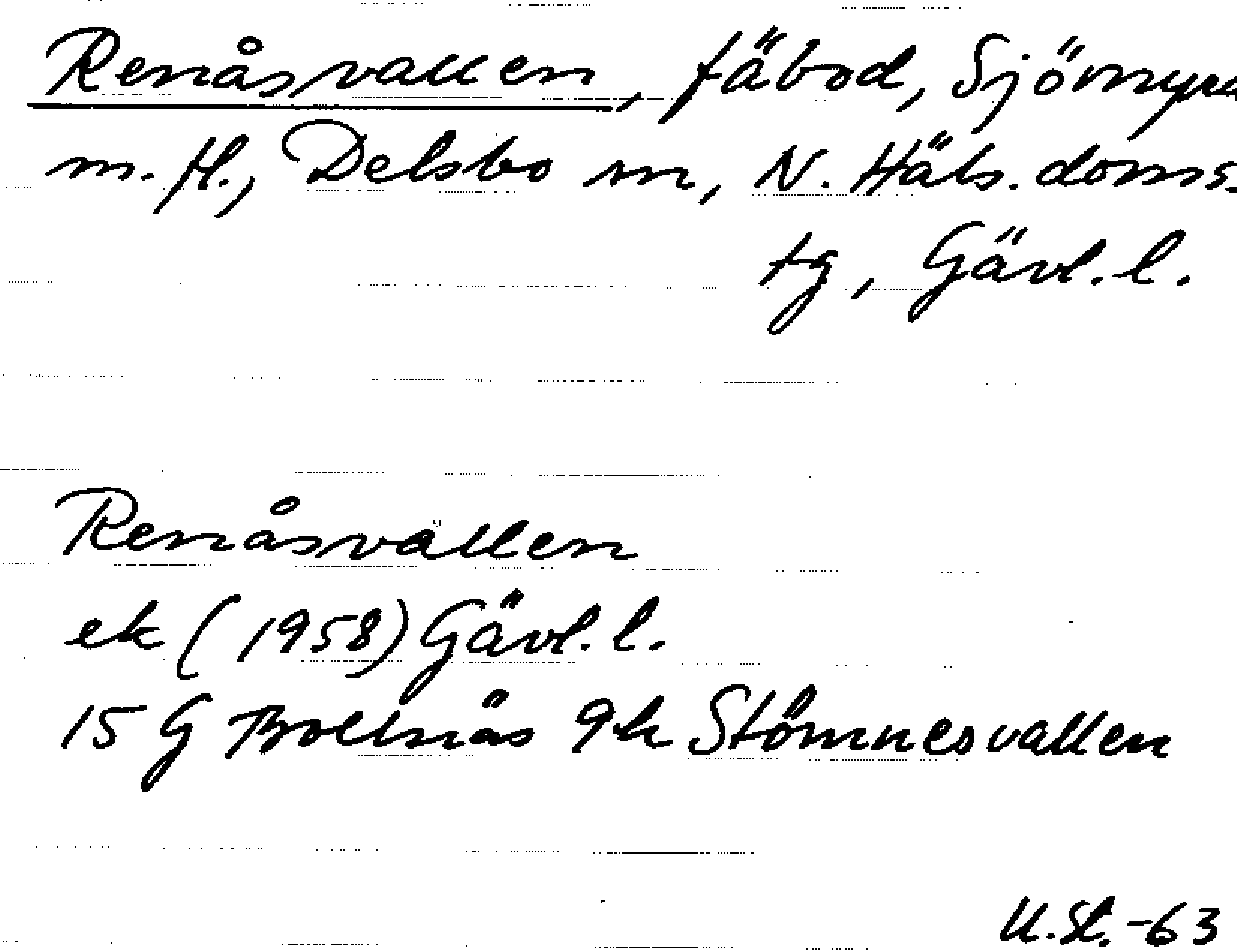 Renåsvallen, fäbod, Sjömyra
m. fl., Delsbo sn, N. Häls. doms.
tg, Gävl. l.
Renåsvallen
ek (1958) Gävl. l.
15 G Bollnäs 9h Stömnesvallen
U. St. -63